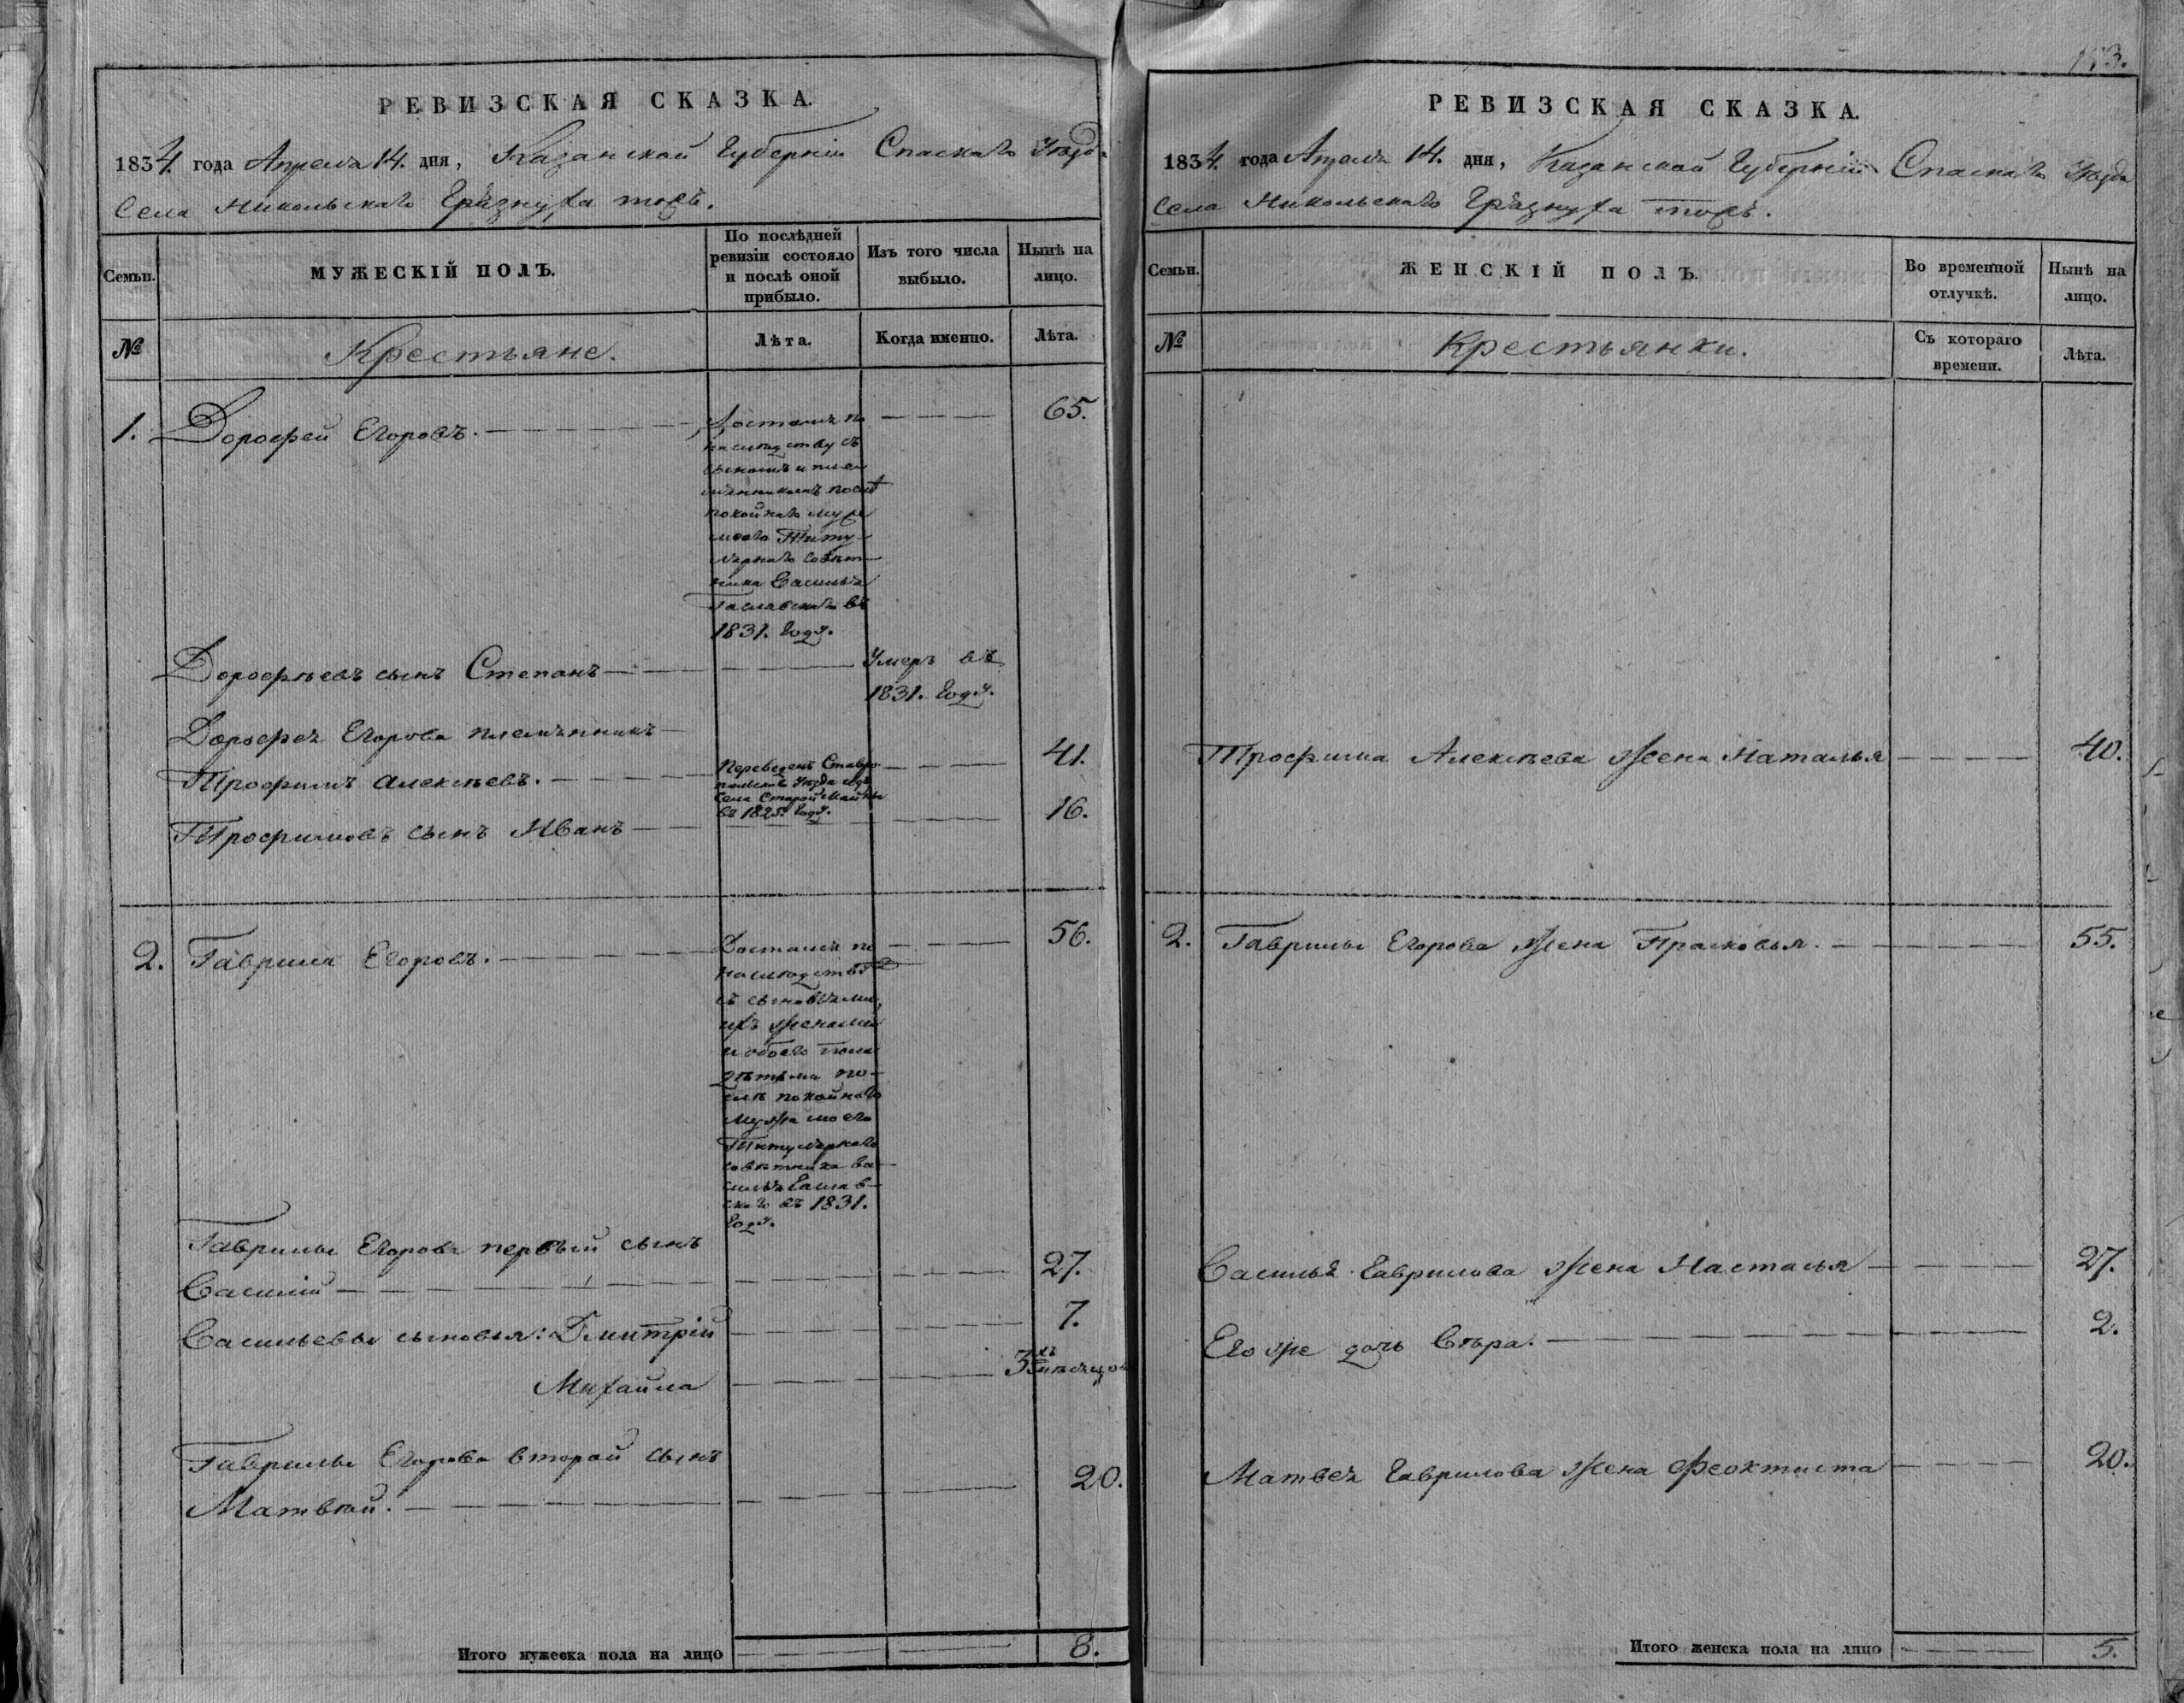 РЕВИЗСКАЯ СКАЗКА.
1834. года Апреля 14. дня, Казанской Губерніи Спаскаго Уезда
Села Никольскаго Грязнуха тожъ.
Семьи.
МУЖЕСКІЙ ПОЛЪ.
По послѣдней
ревизіи состояло
и послѣ оной
прибыло.
Изъ того числа
выбыло.
Нынѣ на
лицо.
№
Крестьяне.
Лѣта.
Когда именно.
Лѣта.
1. Дорофей Егоровъ.
Достался по
наследству съ
сыномъ и пле
мянникомъ после
покойнаго мужа
моего Титу-
лярнаго совѣт-
ника Василья
1831. году.
65.
Дорофѣевъ сынъ Степанъ
Умеръ въ
1831. году.
Дорофея Егорова племянникъ
Трофимъ Алексѣевъ.
Переведенъ Ставро
польскаго Уезда изъ
села Старой Майны
въ 1825. году.
41.
Трофимовъ сынъ Иванъ 16.
2. Гаврила Егоровъ.
Достался по
наследству
съ сыновьями,
ихъ женами
и обоего пола
дѣтьми по-
слѣ покойнаго
мужа моего
Титулярнаго
совѣтника Ва-
силья
скаго въ 1831.
году.
56.
Гаврилы Егорова первый сынъ
Василій 27.
Васильевы сыновья: Дмитрій 7.
Михайла 3хъ месяцовъ
Гаврилы Егорова второй сынъ
Матвѣй. 20.
Итого мужеска пола на лицо 8.
РЕВИЗСКАЯ СКАЗКА.
1834. года Апреля 14. дня, Казанской Губерніи Спаскаго Уезда
Села Никольскаго Грязнуха тожъ.
Семьи.
ЖЕНСКІЙ ПОЛЪ.
Во временной
отлучкѣ.
Нынѣ на
лицо.
№
Крестьянки.
Съ котораго
времени.
Лѣта.
Трофима Алексѣева жена Наталья 40.
2. Гаврилы Егорова жена Прасковья. 55.
Василья Гаврилова жена Настасья 27.
Его же дочь Вѣра. 2.
Матвея Гаврилова жена Феоктиста 20.
Итого женска пола на лицо 5.